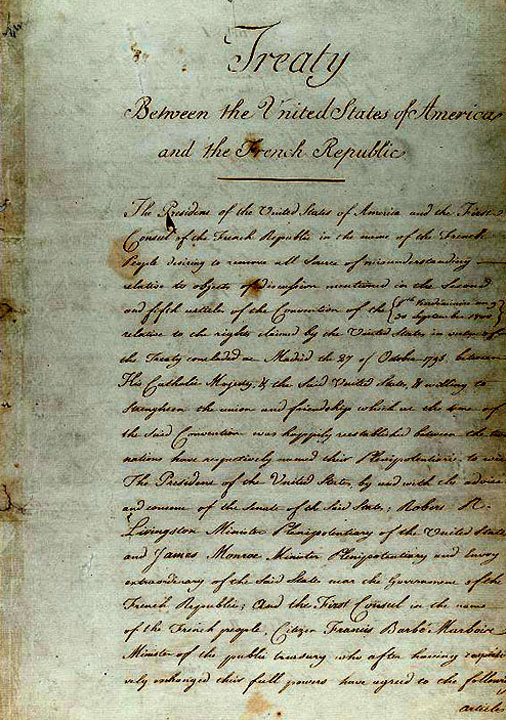 Treaty
Between the United States of America
and the French Republic
The President of the United States of America and the First
Consul of the French Republic in the name of the French
People desiring to remove all Source of misunderstanding
relative to objects of discussion mentioned in the Second
and fifth articles of the Convention of the 8th Vendémiaire an 9
30 September 1800
relative to the rights claimed by the United States in virtue of
the Treaty concluded at Madrid the 27 of October 1795, between
His Catholic Majesty, & the Said United States, & willing to
Strengthen the union and friendship which at the time of
the Said Convention was happily reestablished between the two
nations have respectively named their Plenipotentiaries to wit
The President of the United States, by and with the advice
and consent of the Senate of the Said States; Robert R.
Livingston Minister Plenipotentiary of the United States
and James Monroe Minister Plenipotentiary and Envoy
extraordinary of the Said States near the Government of the
French Republic; And the First Consul in the name
of the French people, Citizen Francis Barbé Marbois
Minister of the public treasury who after having respecti
vely exchanged their full powers have agreed to the following
articles